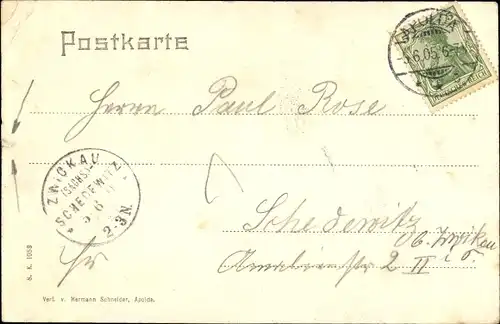 Postkarte
APOLDA
-5.6.05. 6-7
Deutsches Reich
Herrn Paul Rose
ZWICKAU
(SACHS)-
SCHEDEWITZ.
* 5 6
2-3 N.
Schedewitz
b. Zwickau
i/S.
Amalienstr 2 II
S. K. 1058
Verl. v. Hermann Schneider, Apolda.